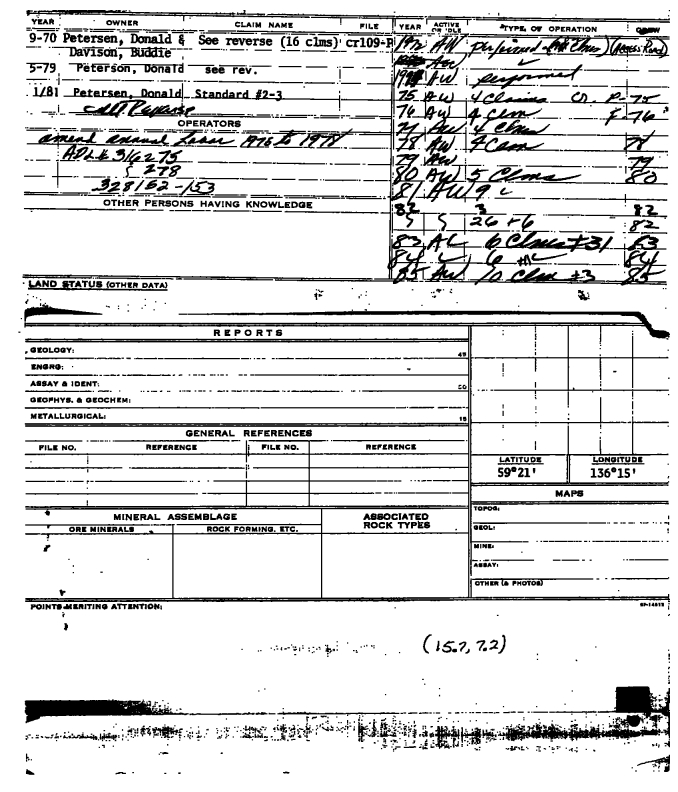 YEAR OWNER CLAIM NAME FILE YEAR ACTIVE OR IDLE *TYPE OF OPERATION CREW
9-70 Petersen, Donald & See reverse (16 clms) cr109-P 1972 AW performed (Access Road)
Davison, Buddie
5-79 Peterson, Donald see rev. AW performed
1/81 Petersen, Donald Standard #2-3 75 AW 4 Claims CD. P-75
76 AW 4 Clm F-76
OPERATORS 77 AW 4 Clm
amend annual Labor 1975 to 1978 78 AW 4 Clam 78
ADL# 316275 79 AW 79
278 80 AW 5 Clms 80
328152-153 81 AW 9
OTHER PERSONS HAVING KNOWLEDGE 82 3 82
26 + 6 82
83 6 Clms #31 83
84 6 84
85 AW 10 Clm #3 85
LAND STATUS (OTHER DATA)
REPORTS
GEOLOGY: 45
ENGRG:
ASSAY & IDENT: 50
GEOPHYS. & GEOCHEM:
METALLURGICAL: 15
GENERAL REFERENCES
FILE NO. REFERENCE FILE NO. REFERENCE
LATITUDE LONGITUDE
59°21' 136°15'
MAPS
MINERAL ASSEMBLAGE ASSOCIATED ROCK TYPES TOPOG:
ORE MINERALS ROCK FORMING, ETC. GEOL:
MINE:
ASSAY:
OTHER (& PHOTOS)
POINTS MERITING ATTENTION:
(15.7, 7.2)